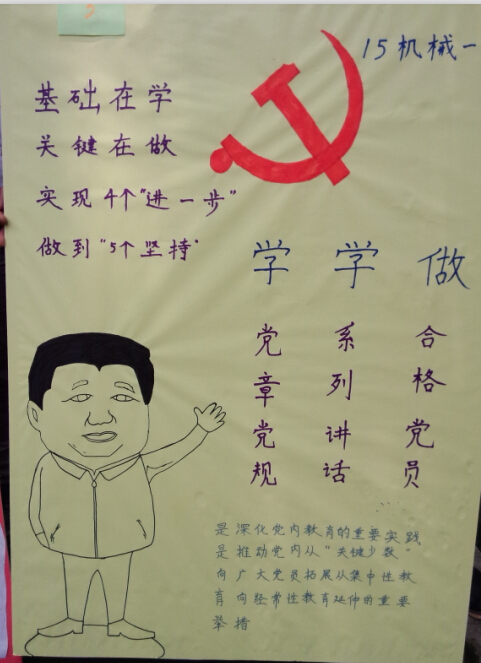 15机械一
基础在学
关键在做
实现4个"进一步"
做到"5个坚持"
学 学 做
党章党规
系列讲话
合格党员
是深化党内教育的重要实践
是推动党内从"关键少数"
向广大党员拓展从集中性教
育向经常性教育延伸的重要
举措